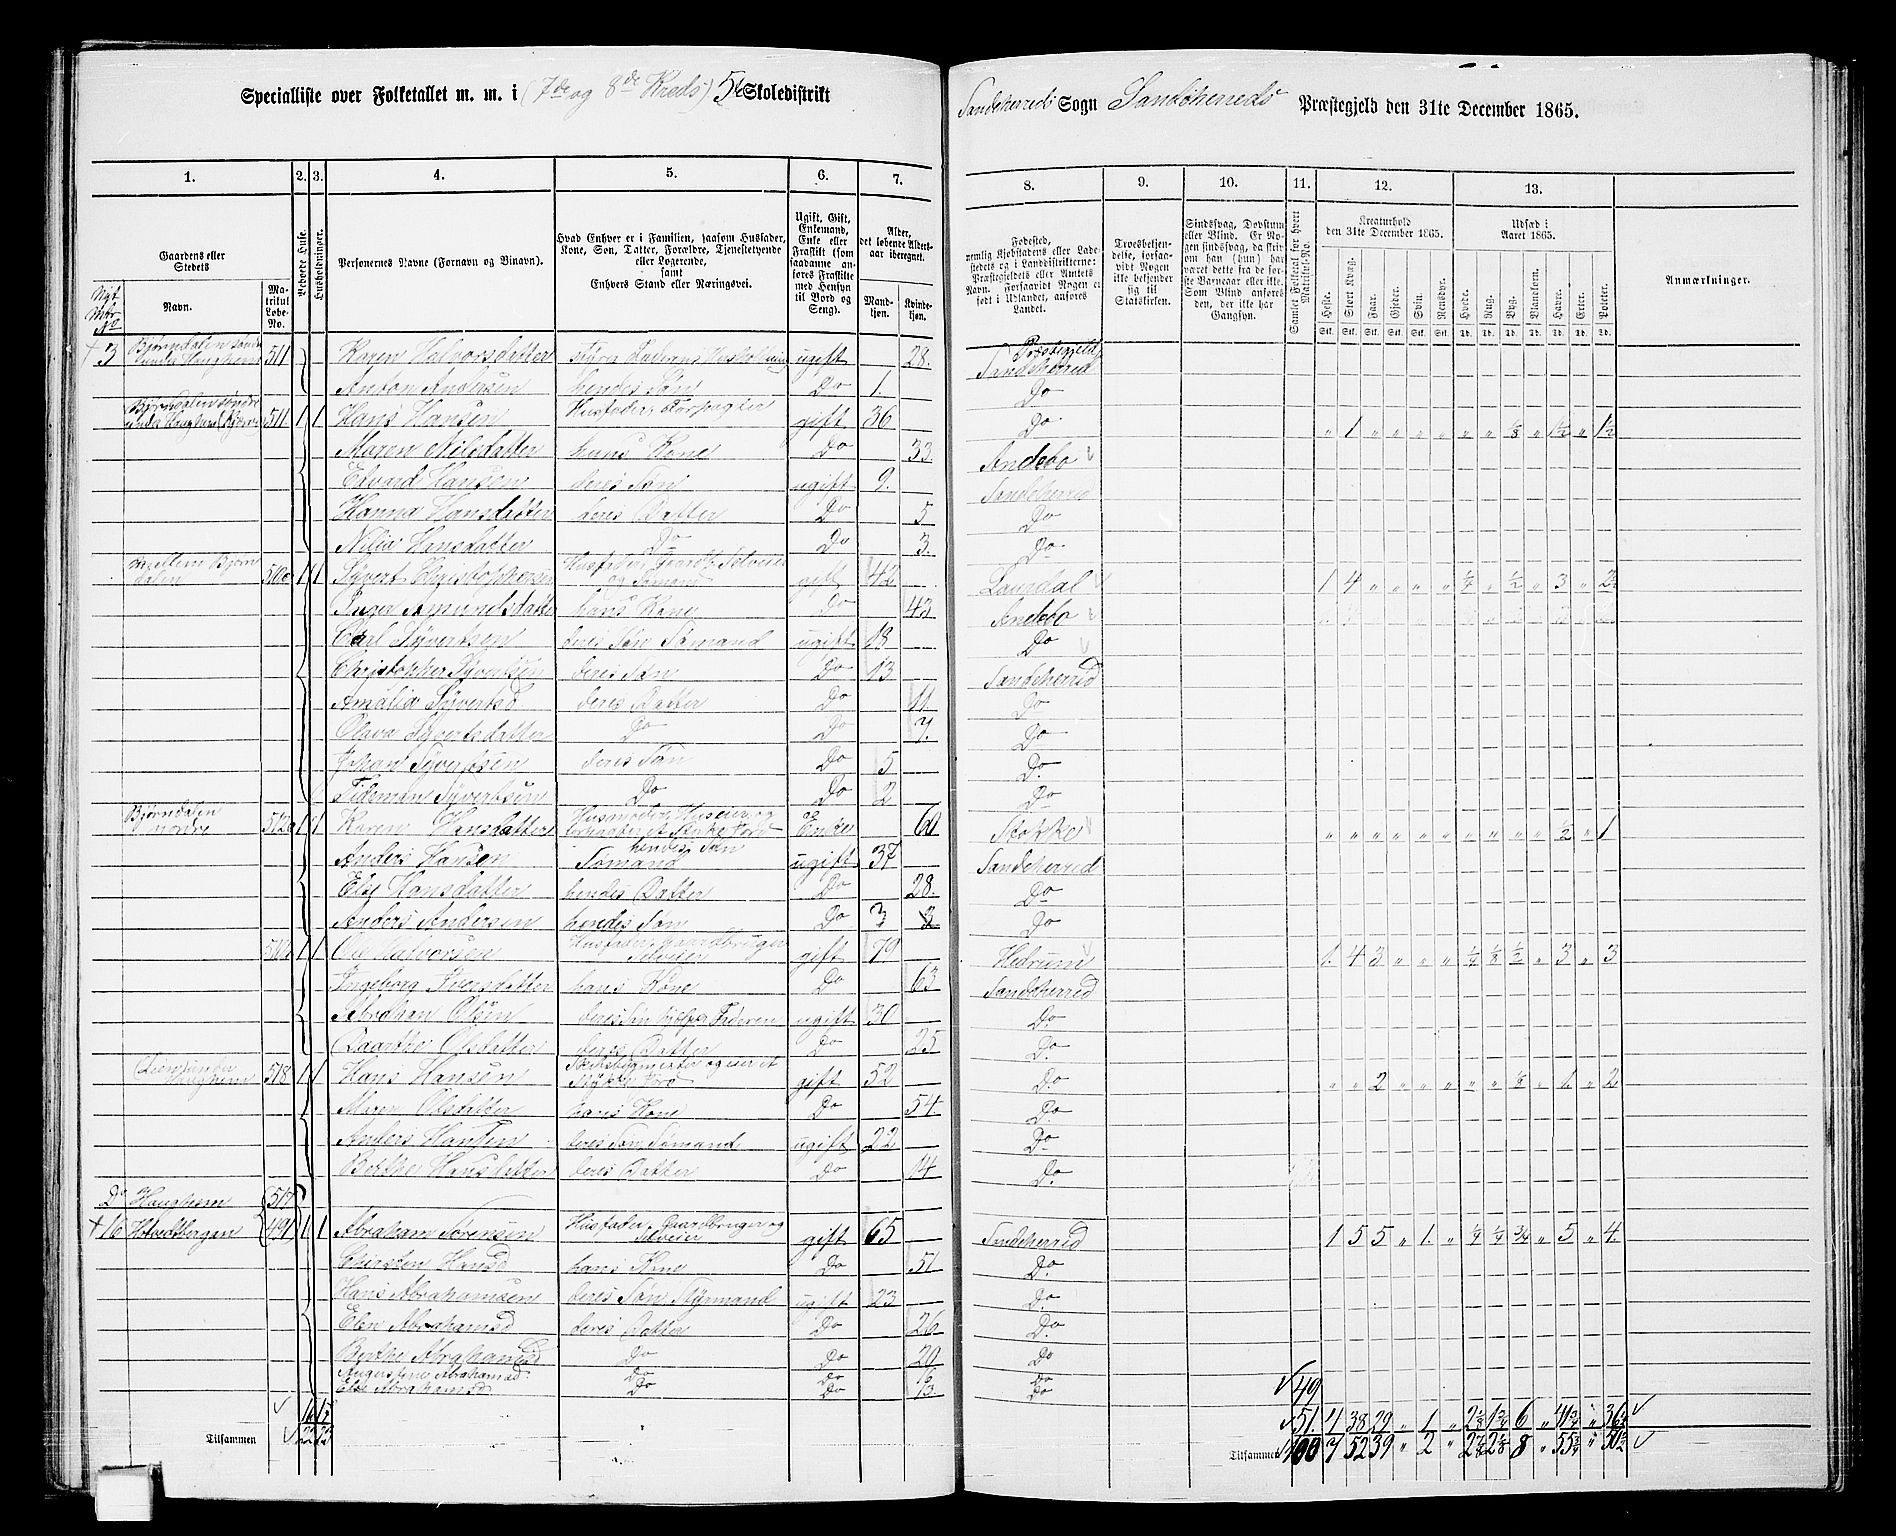 Specialliste over Folketallet m. m. i (7de og 8de Kreds) 5te Skoledistrikt
Sandeherred Sogn Sandeherreds Præstegjeld den 31te December 1865.
1. 2. 3. 4. 5. 6. 7. 8. 9. 10. 11. 12. 13.
Gaardens eller Stedets
Navn.
Matrikul Løbe-No.
Beboede Huse.
Husholdninger.
Personernes Navne (Fornavn og Binavn).
Hvad Enhver er i Familien, saasom Husfader, Kone, Søn, Datter, Forældre, Tjenestetyende eller Logerende, samt Enhvers Stand eller Næringsvei.
Ugift, Gift, Enkemand, Enke eller Fraskilt (som saadanne anføres Fraskilte med Hensyn til Bord og Seng).
Alder, det løbende Alders-aar iberegnet.
Mandkjøn. Kvindekjøn.
Fødested, nemlig Kjøbstadens eller Ladestedets og i Landdistrikterne: Præstegjeldets eller Amtets Navn. Forsaavidt Nogen er født i Udlandet, anføres Landet.
Troesbekjendelse, forsaavidt Nogen ikke bekjender sig til Statskirken.
Sindssvag, Døvstum eller Blind. Er Nogen sindssvag, da skrives om han (hun) har været dette fra de første Barneaar eller ikke. Som Blind anføres den, der ikke har Gangsyn.
Samlet Folketal for hvert Matrikul-No.
Kreaturhold den 31te December 1865.
Heste. Stort Kvæg. Faar. Gjeder. Svin. Rensdyr.
Udsæd i Aaret 1865.
Hvede. Rug. Byg. Blandkorn. Havre. Erter. Poteter.
Anmærkninger.
† 3 Bjørndalen søndre under Haughem 511 Karen Halvorsdatter styrer Faderens Husholdning ugift 28. Præstegjeld Sandeherred
Anton Andersen hendes Søn Do 1. Do
Bjørndalen søndre under Haughem 511 1 1 Hans Hansen Husfader, Forpagter gift 36 Do " 1 " " " " " " 1/8 " 1 1/2 " 1 1/2
Maren Nilsdatter hans Kone Do 33 Andebo
Edvard Hansen deres Søn ugift 9. Sandeherred
Hanna Hansdatter deres Datter Do 5 Do
Nilia Hansdatter Do Do 3. Do
mellem Bjørndalen 1 1 Syvert Christophersen Husfader, Gaardb. Selveier og Sømand gift 42 Laurdal 1 4 " " " " 1/4 " 1/2 " 3 "
Inger Amundsdatter hans Kone Do 43 Andebo
Carl Syvertsen deres Søn Sømand ugift 18 Do
Christopher Syvertsen deres Søn Do 13 Sandeherred
Amalia Syvertsd. deres Datter Do 11. Do
Olava Syvertsdatter Do Do 7. Do
Johan Syvertsen deres Søn Do 5 Do
Tideman Syvertsen Do Do 2 Do
Bjørndalen nordre 512 1 1 Karen Hansdatter Husmoder, Huseier og Enke 60 Stokke " " " " " " " " " " 1/2 " 1
Anders Hansen hendes Søn Sømand ugift 37 Sandeherred
Else Hansdatter hendes Datter Do 28. Do
Anders Andersen hendes Søn Do 3 Do
1 1 Ole Halvorsen Husfader, Gaardbruger Selveier gift 79 Hedrum 1. 4 3 " " " 1/4 1/8 1/2 " 3 " 3
Ingeborg Iversdatter hans Kone Do 63 Sandeherred
Abraham Olsen deres Søn hjelper Faderen ugift 30 Do.
Olsdatter deres Datter Do 25 Do.
under Haughem 518 1 1 Hans Hansen og eier et Stykke Jord gift 52 Do " " 2 " " " " " 1/8 " 1. " 2
Maren Olsdatter hans Kone Do 54. Do.
Anders Hansen deres Søn, Sømand ugift 22 Do
Berthe Hansdatter deres Datter Do 14 Do.
Do Haughem 517
† 16 Hotvedtbergan 491 1 1 Abraham Sørensen Husfader, Gaardbruger og Selveier gift 65 Sandeherred 1 5 5 " 1. " 1/4 1/4 3/4 " 5 " 4.
Chirsten Hansd hans Kone Do 51 Do.
Hans Abrahamsen deres Søn Styrmand ugift 23 Do.
Elen Abrahamsd deres Datter Do 26 Do.
Berthe Abrahamsd Do Do 20 Do
Augustine Abrahamsd. Do Do 16 Do
Else Abrahamsd Do Do 13 Do
49
51. 4 38 29 " 1 " 6 " 41 3/4 "
Tilsammen
Tilsammen 100 7 52 39 " 2 " 2 1/8 8 " 55 3/4 " 50 1/2